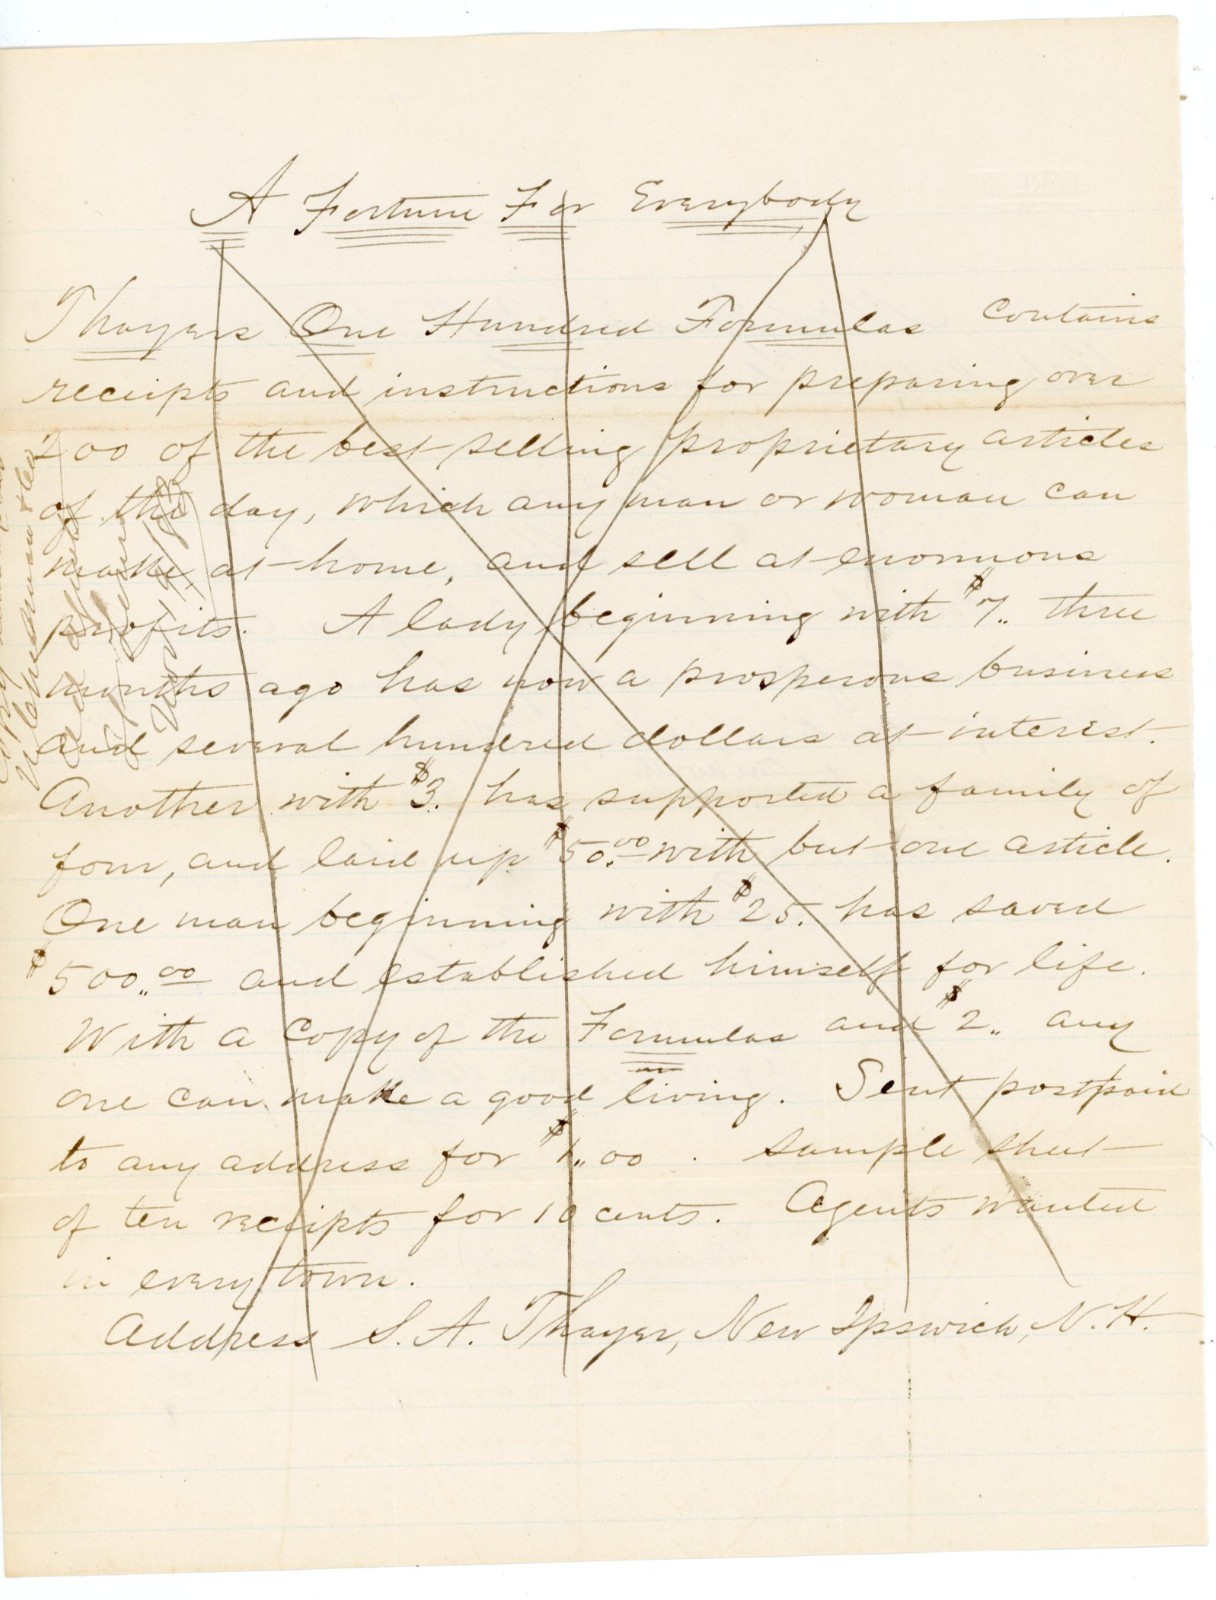 A Fortune For Everybody
Thayers One Hundred Formulas contains
receipts and instructions for preparing over
200 of the best selling proprietary articles
of the day, which any man or woman can
make at home, and sell at enormous
profits. A lady beginning with $7. three
months ago has now a prosperous business
and several hundred dollars at interest.
Another with $3. has supported a family of
four, and laid up $50.00 with but one article.
One man beginning with $25. has saved
$500.00 and established himself for life.
With a copy of the Formulas and $2. any
one can make a good living. Sent postpaid
to any address for $1.00. Sample sheet
of ten receipts for 10 cents. Agents wanted
in every town.
Address S. A. Thayer, New Ipswich, N. H.
Copy